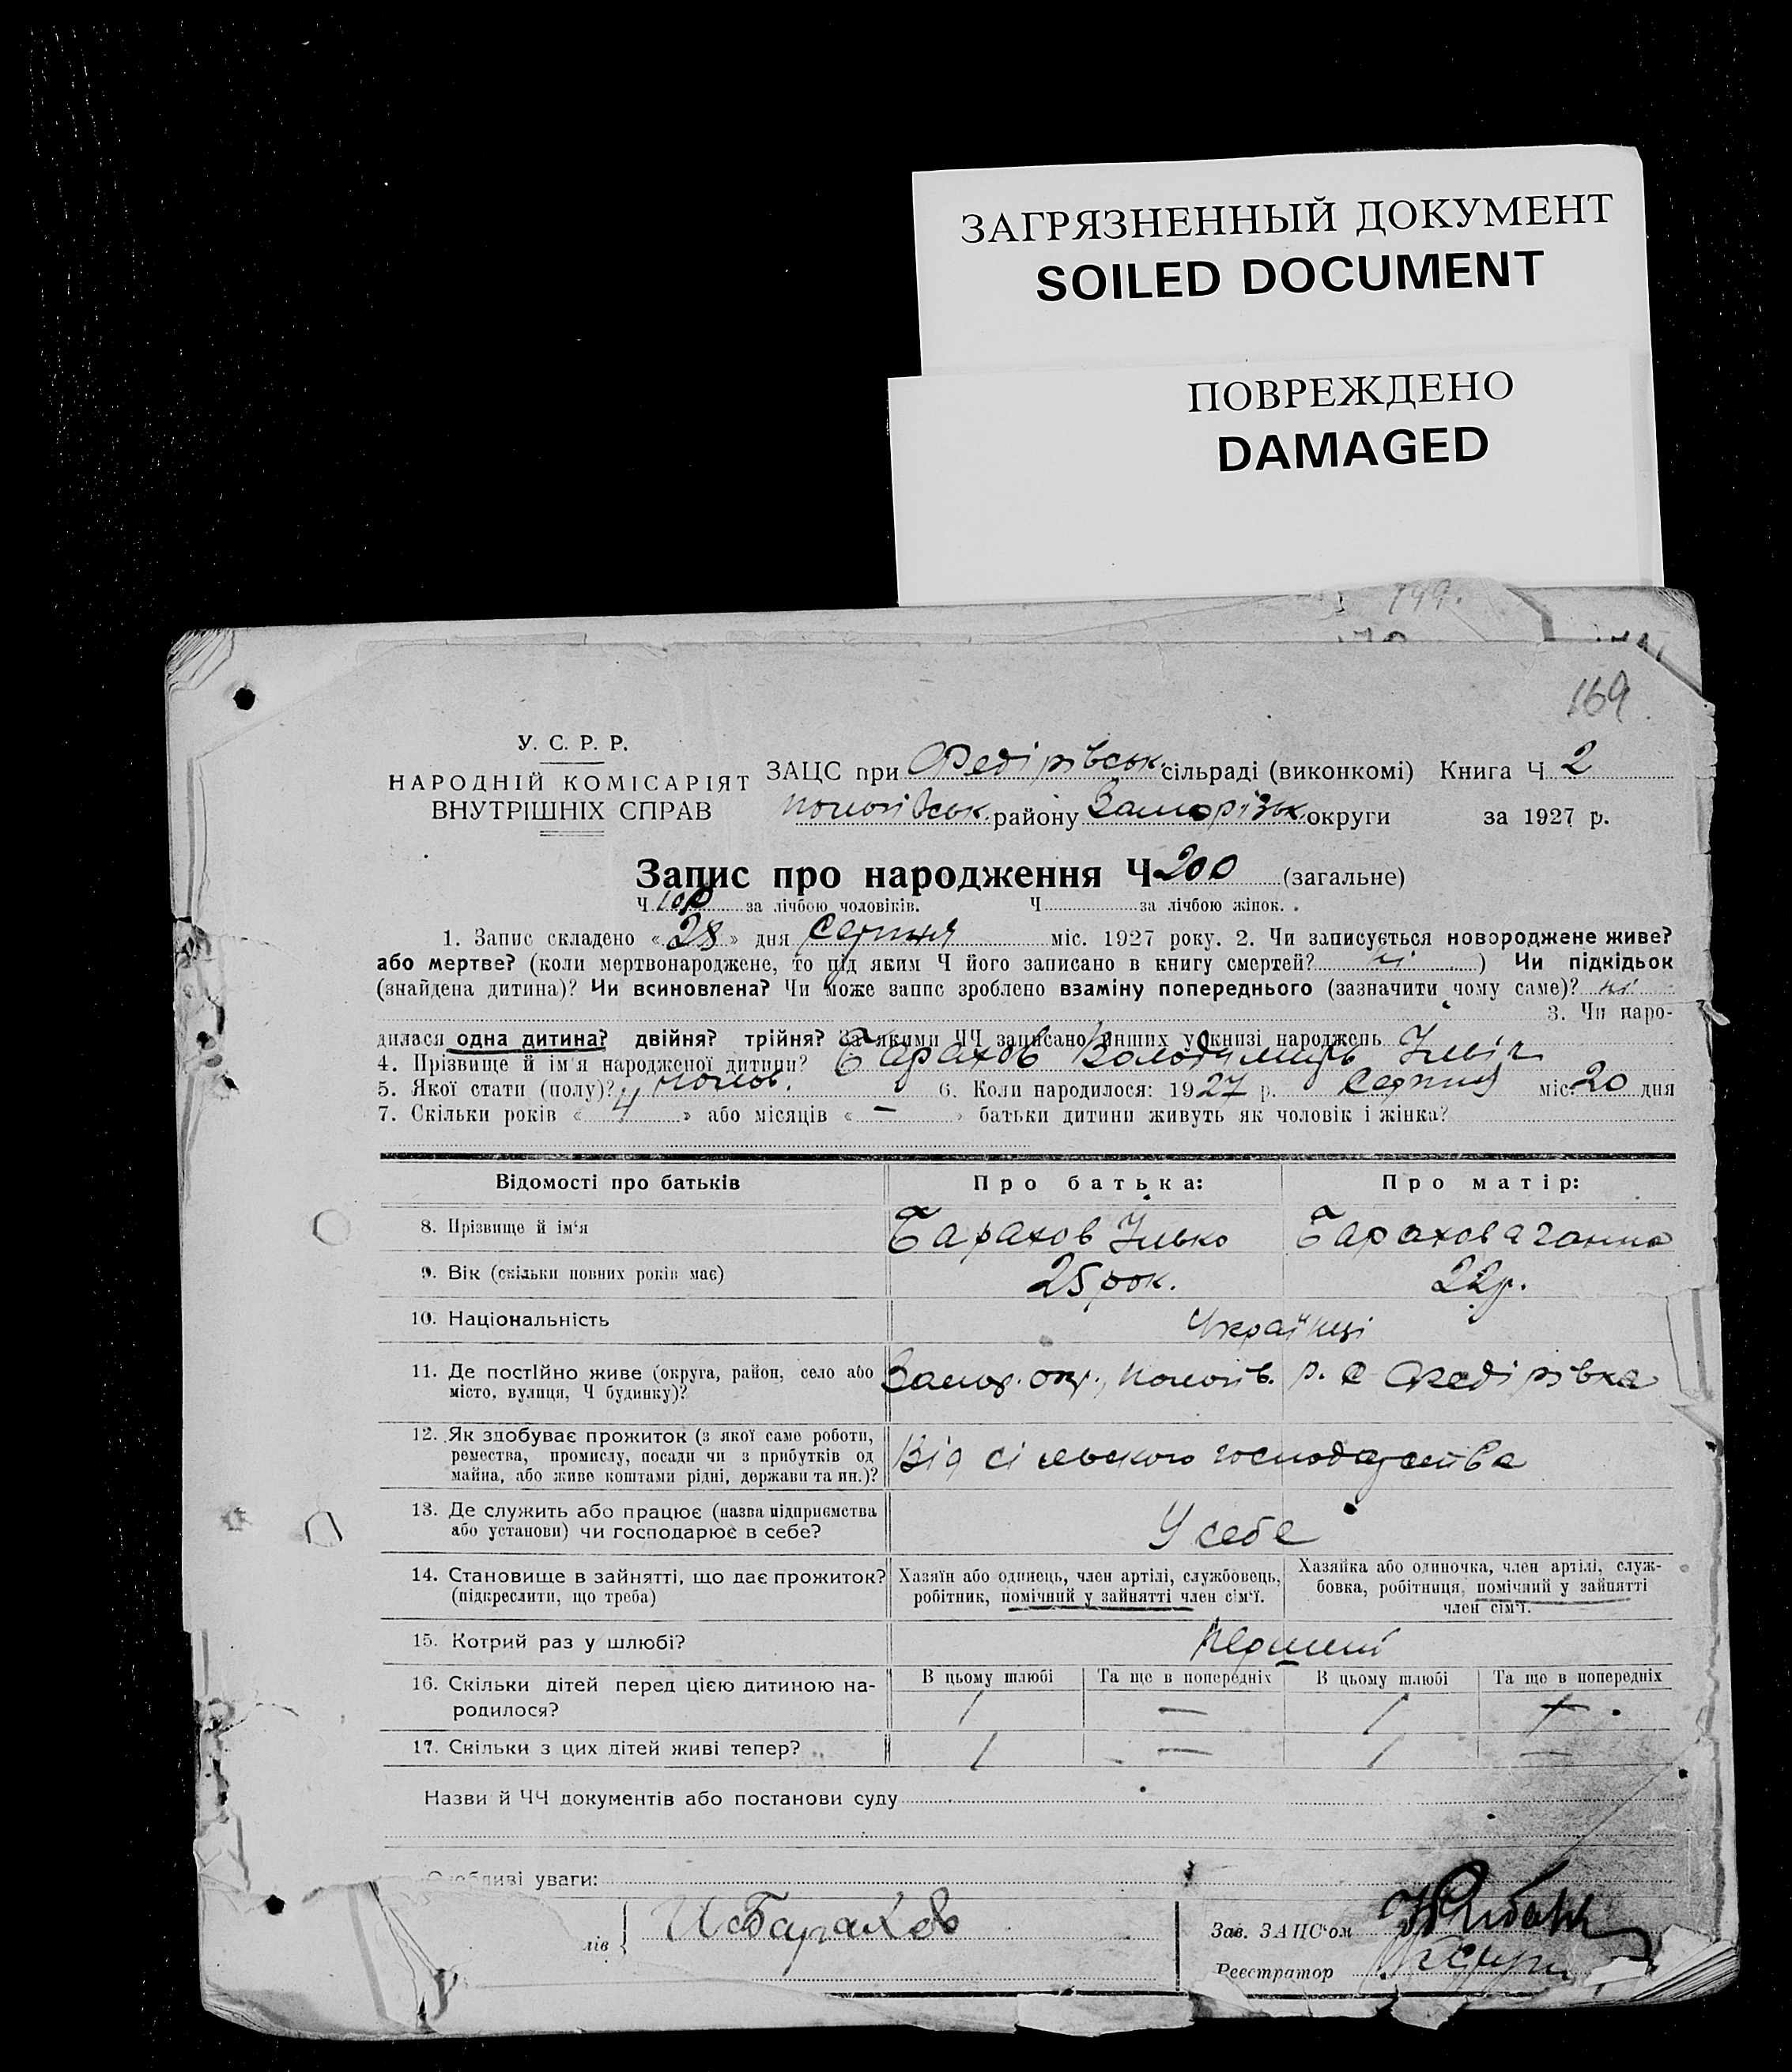 ЗАГРЯЗНЕННЫЙ ДОКУМЕНТ
SOILED DOCUMENT
ПОВРЕЖДЕНО
DAMAGED
199.
169
У. С. Р. Р.
НАРОДНІЙ КОМІСАРІЯТ
ВНУТРІШНІХ СПРАВ
ЗАЦС при Федірівськ. сільраді (виконкомі) Книга Ч 2
пологівськ. району Запорізьк. округи за 1927 р.
Запис про народження Ч 200 (загальне)
Ч 100 за лічбою чоловіків. Ч за лічбою жінок.
1. Запис складено «28» дня Серпня міс. 1927 року. 2. Чи записується новороджене живе?
або мертве? (коли мертвонароджене, то під яким Ч його записано в книгу смертей? ні) Чи підкідьок
(знайдена дитина)? Чи всиновлена? Чи може запис зроблено взаміну попереднього (зазначити чому саме)? ні
3. Чи наро-
дилася одна дитина? двійня? трійня? За якими ЧЧ записано инших у книзі народжень
4. Прізвище й ім'я народженої дитини? Барахов Володимир Ілліч
5. Якої стати (полу)? чолов. 6. Коли народилося: 1927 р. Серпня міс. 20 дня
7. Скільки років «4» або місяців «—» батьки дитини живуть як чоловік і жінка?
Відомості про батьків Про батька: Про матір:
8. Прізвище й ім'я Барахов Ілько Барахова Ганна
9. Вік (скільки повних років має) 25 рок. 22 р.
10. Національність Українці
11. Де постійно живе (округа, район, село або місто, вулиця, Ч будинку)? Запор. окр., пологів. р. с Федірівка
12. Як здобуває прожиток (з якої саме роботи, ремества, промислу, посади чи з прибутків од майна, або живе коштами рідні, держави та ин.)? Від сільського господарства
13. Де служить або працює (назва підприємства або установи) чи господарює в себе? У себе
14. Становище в зайнятті, що дає прожиток? (підкреслити, що треба)
Хазяїн або одинець, член артілі, службовець, робітник, помічний у зайнятті член сім'ї.
Хазяйка або одиночка, член артілі, служ-
бовка, робітниця, помічний у зайнятті
член сім'ї.
15. Котрий раз у шлюбі? перший
В цьому шлюбі Та ще в попередніх В цьому шлюбі Та ще в попередніх
16. Скільки дітей перед цією дитиною на-
родилося? 1 — 1 —
17. Скільки з цих дітей живі тепер? 1 — 1 —
Назви й ЧЧ документів або постанови суду
Особливі уваги:
лів И Барахов
Зав. ЗАЦС'ом
Реєстратор